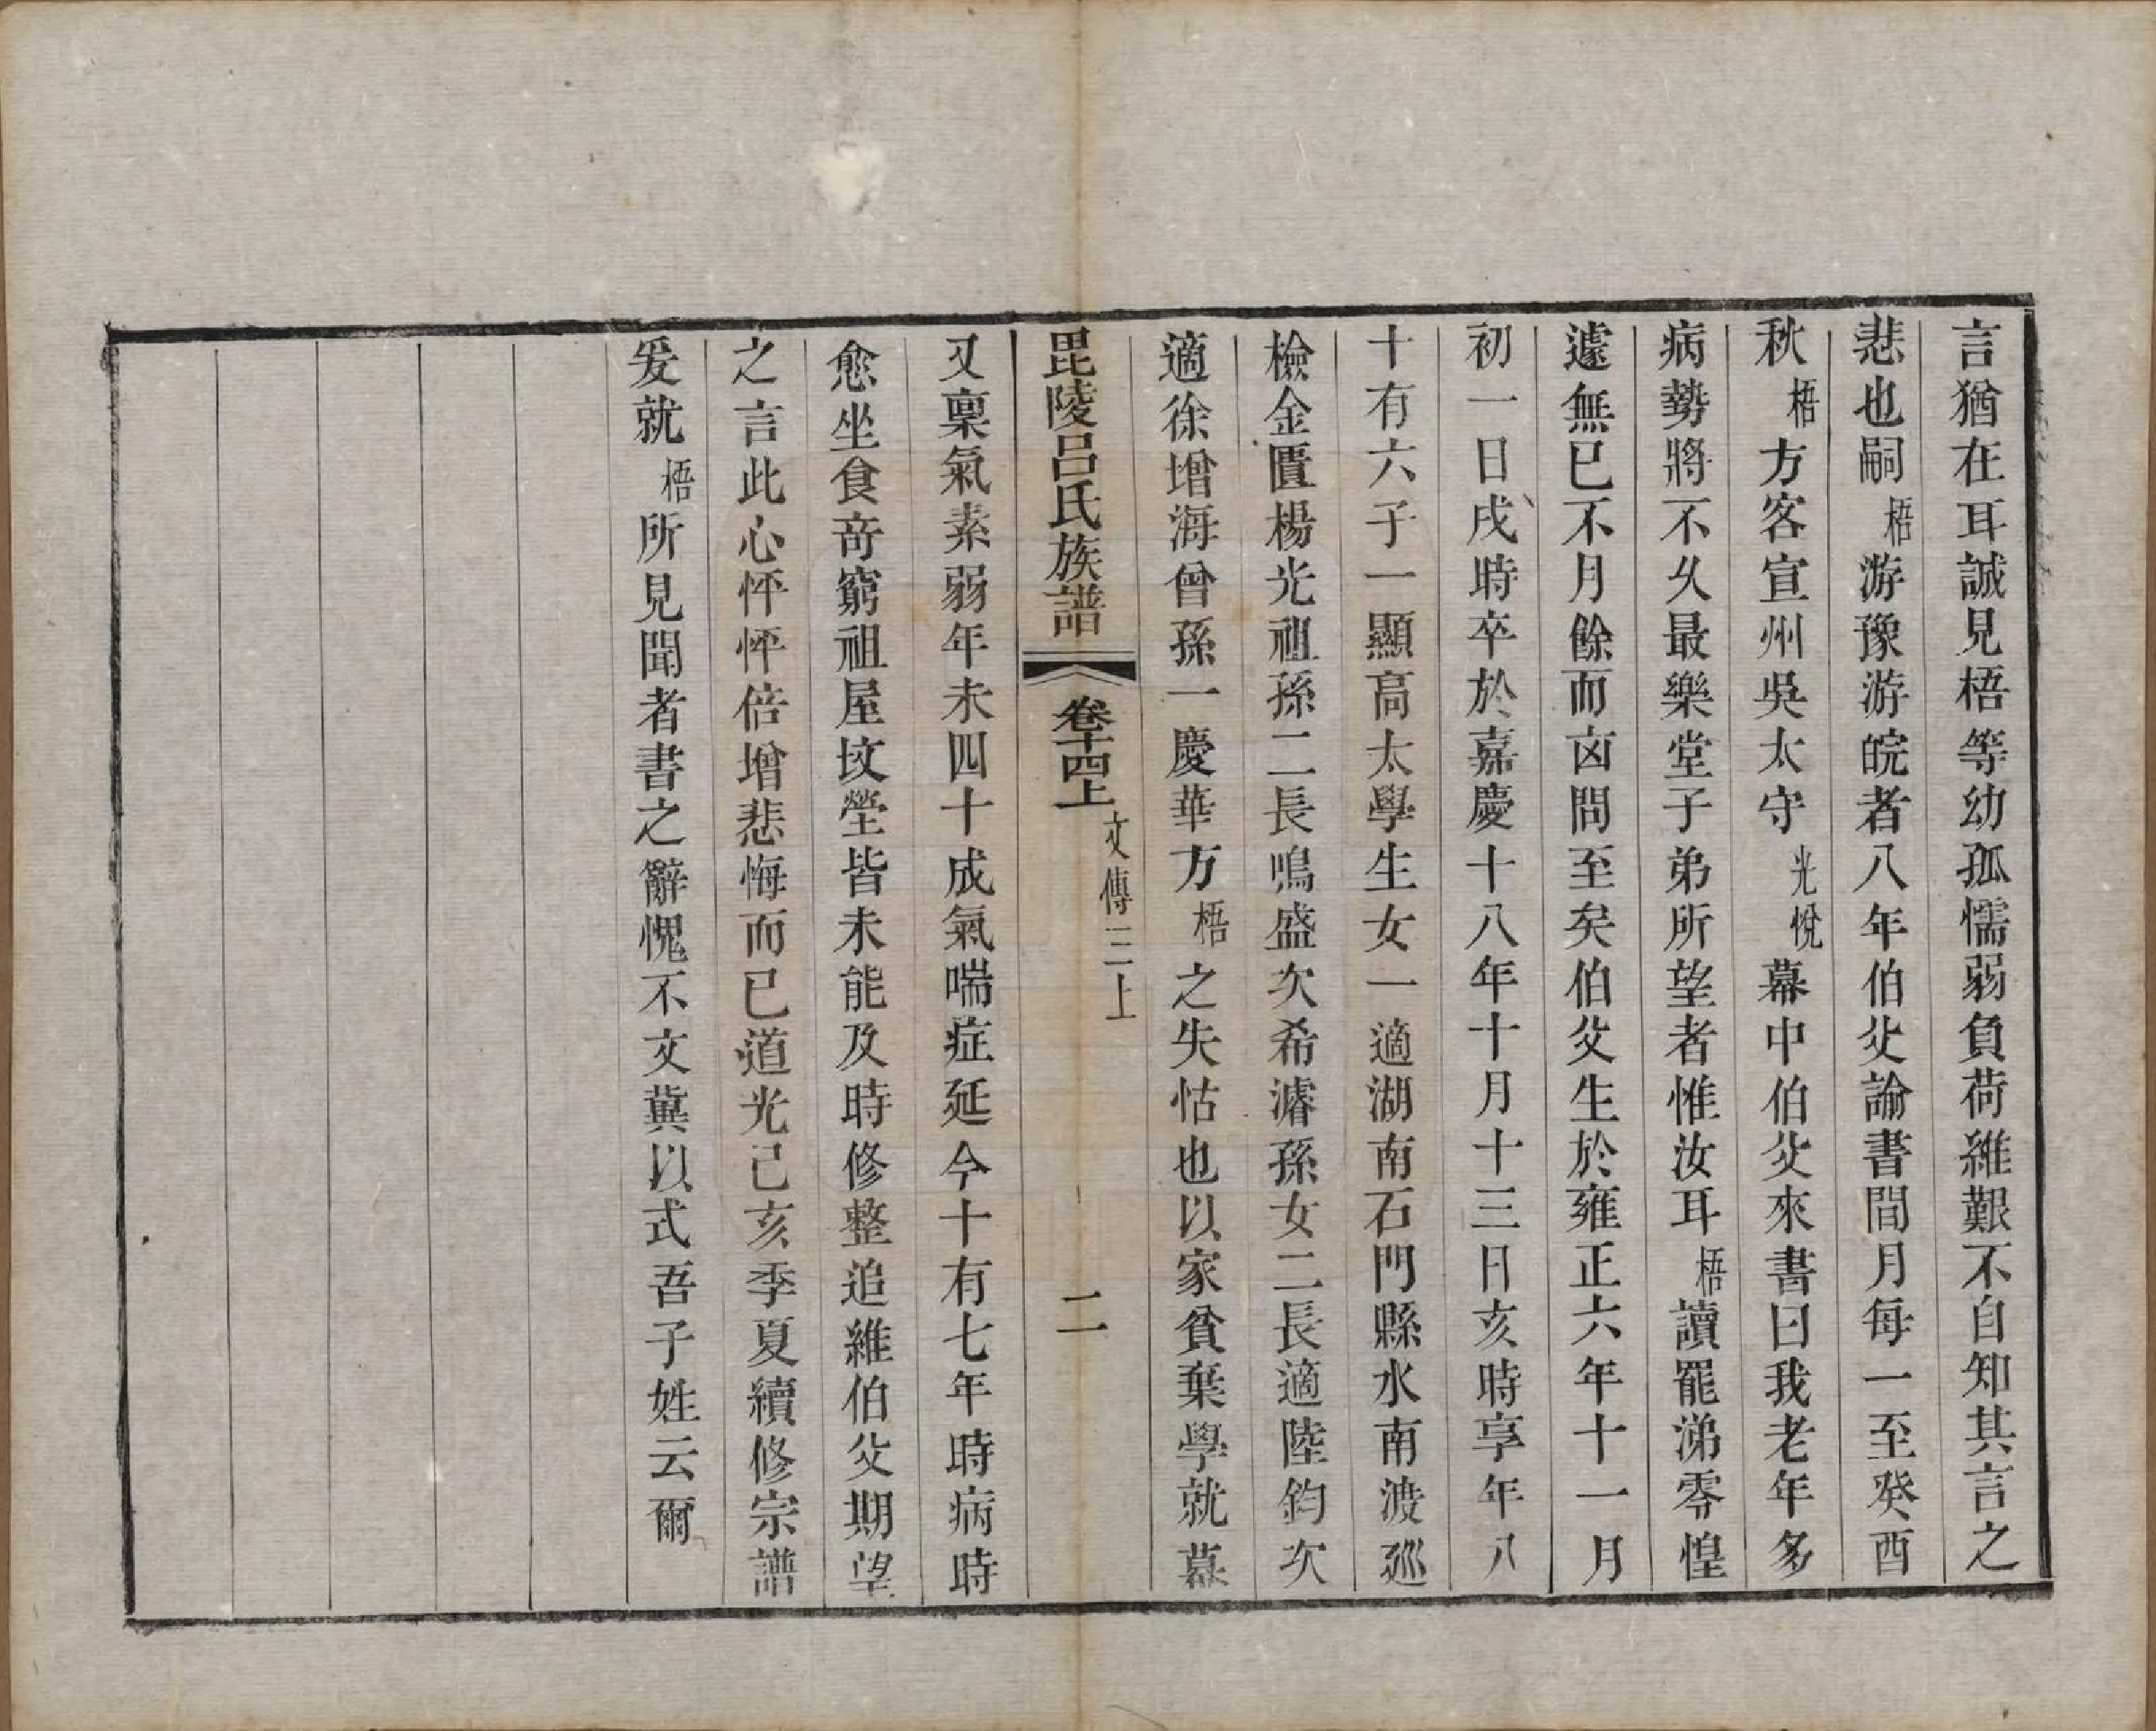 言猶在耳誠見梧等幼孤懦弱負荷維艱不自知其言之
悲也嗣梧游豫游皖者八年伯父諭書間月每一至癸酉
秋梧方客宣州吳太守光悅幕中伯父來書曰我老年多
病勢將不久最樂堂子弟所望者惟汝耳梧讀罷涕零惶
遽無已不月餘而訃問至矣伯父生於雍正六年十一月
初一日戌時卒於嘉慶十八年十月十三日亥時享年八
十有六子一顯高太學生女一適湖南石門縣水南渡巡
檢金匱楊光祖孫二長鳴盛次希濬孫女二長適陸鈞次
適徐增海曾孫一慶華方梧之失怙也以家貧棄學就幕
毘陵呂氏族譜 卷十四上 文傳三上 二
又稟氣素弱年未四十成氣喘症延今十有七年時病時
愈坐食奇窮祖屋墳塋皆未能及時修整追維伯父期望
之言此心怦怦倍增悲悔而已道光己亥季夏續修宗譜
爰就梧所見聞者書之辭愧不文冀以式吾子姓云爾